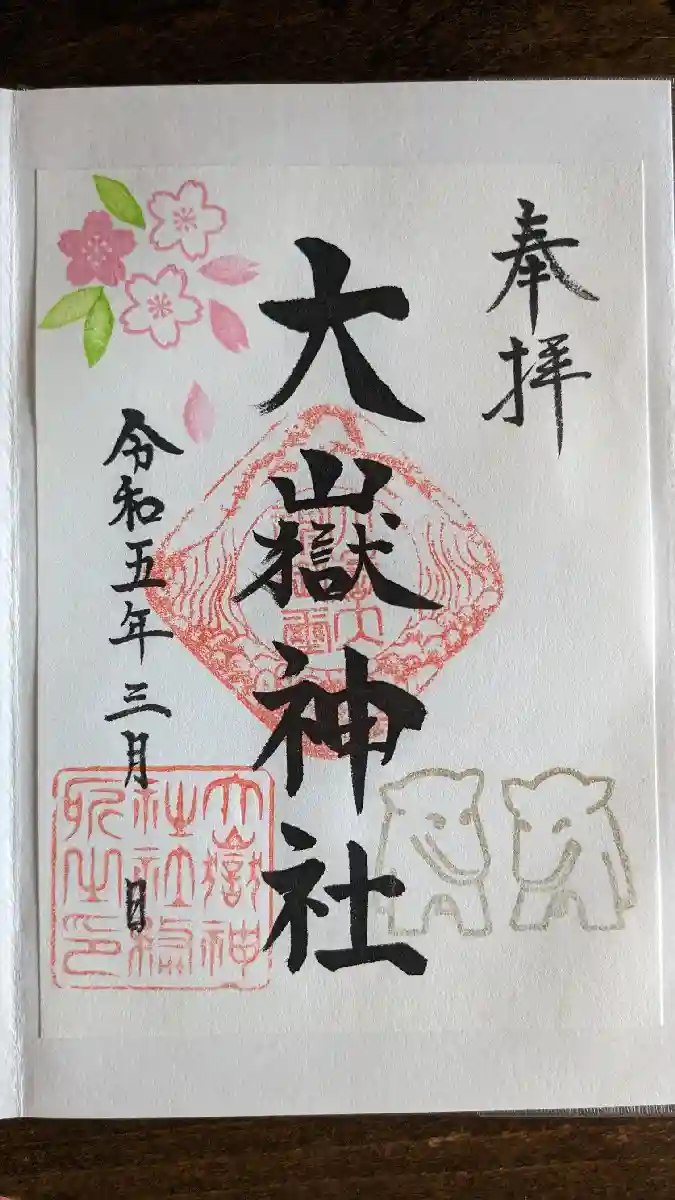 奉拝
大嶽神社
令和五年三月 日
大嶽神
社社務
所之印